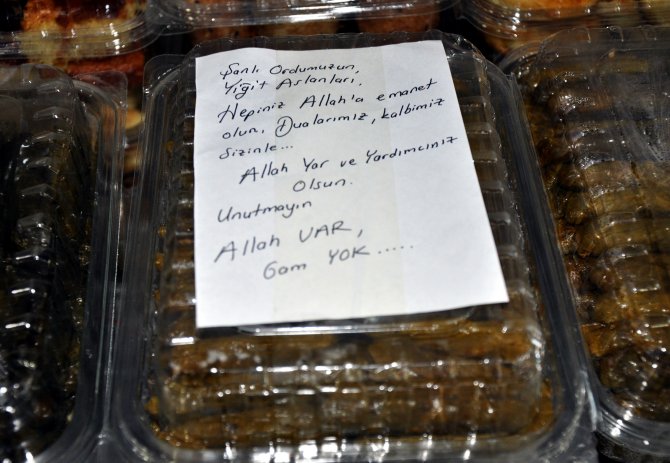 Şanlı Ordumuzun,
Yiğit Aslanları,
Hepiniz Allah'a emanet
olun, Dualarımız, kalbimiz
Sizinle...
Allah Yar ve Yardımcınız
Olsun.
Unutmayın
Allah VAR,
Gam YOK.....